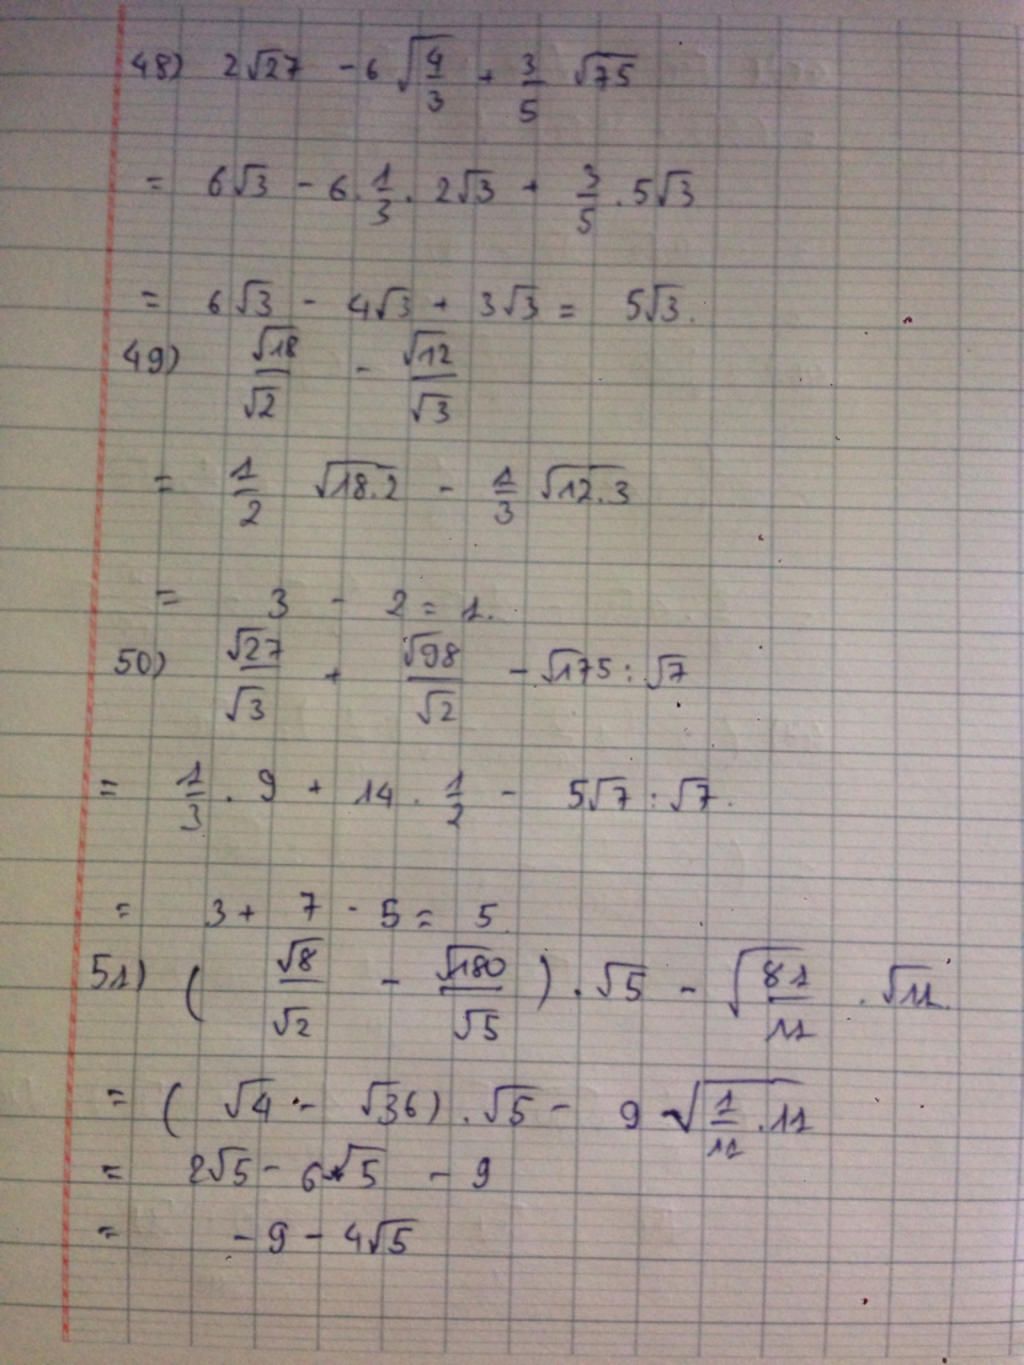 48) 2√27 - 6√(4/3) + 3/5 √75
= 6√3 - 6 . 1/3 . 2√3 + 3/5 . 5√3
= 6√3 - 4√3 + 3√3 = 5√3.
49) √18/√2 - √12/√3
= 1/2 √18.2 - 1/3 √12.3
= 3 - 2 = 1.
50) √27/√3 + √98/√2 - √175 : √7
= 1/3 . 9 + 14 . 1/2 - 5√7 : √7.
= 3 + 7 - 5 = 5
51) (√8/√2 - √180/√5) . √5 - √(81/11) . √11.
= (√4 - √36) . √5 - 9 √(1/11 . 11)
= 2√5 - 6√5 - 9
= -9 - 4√5